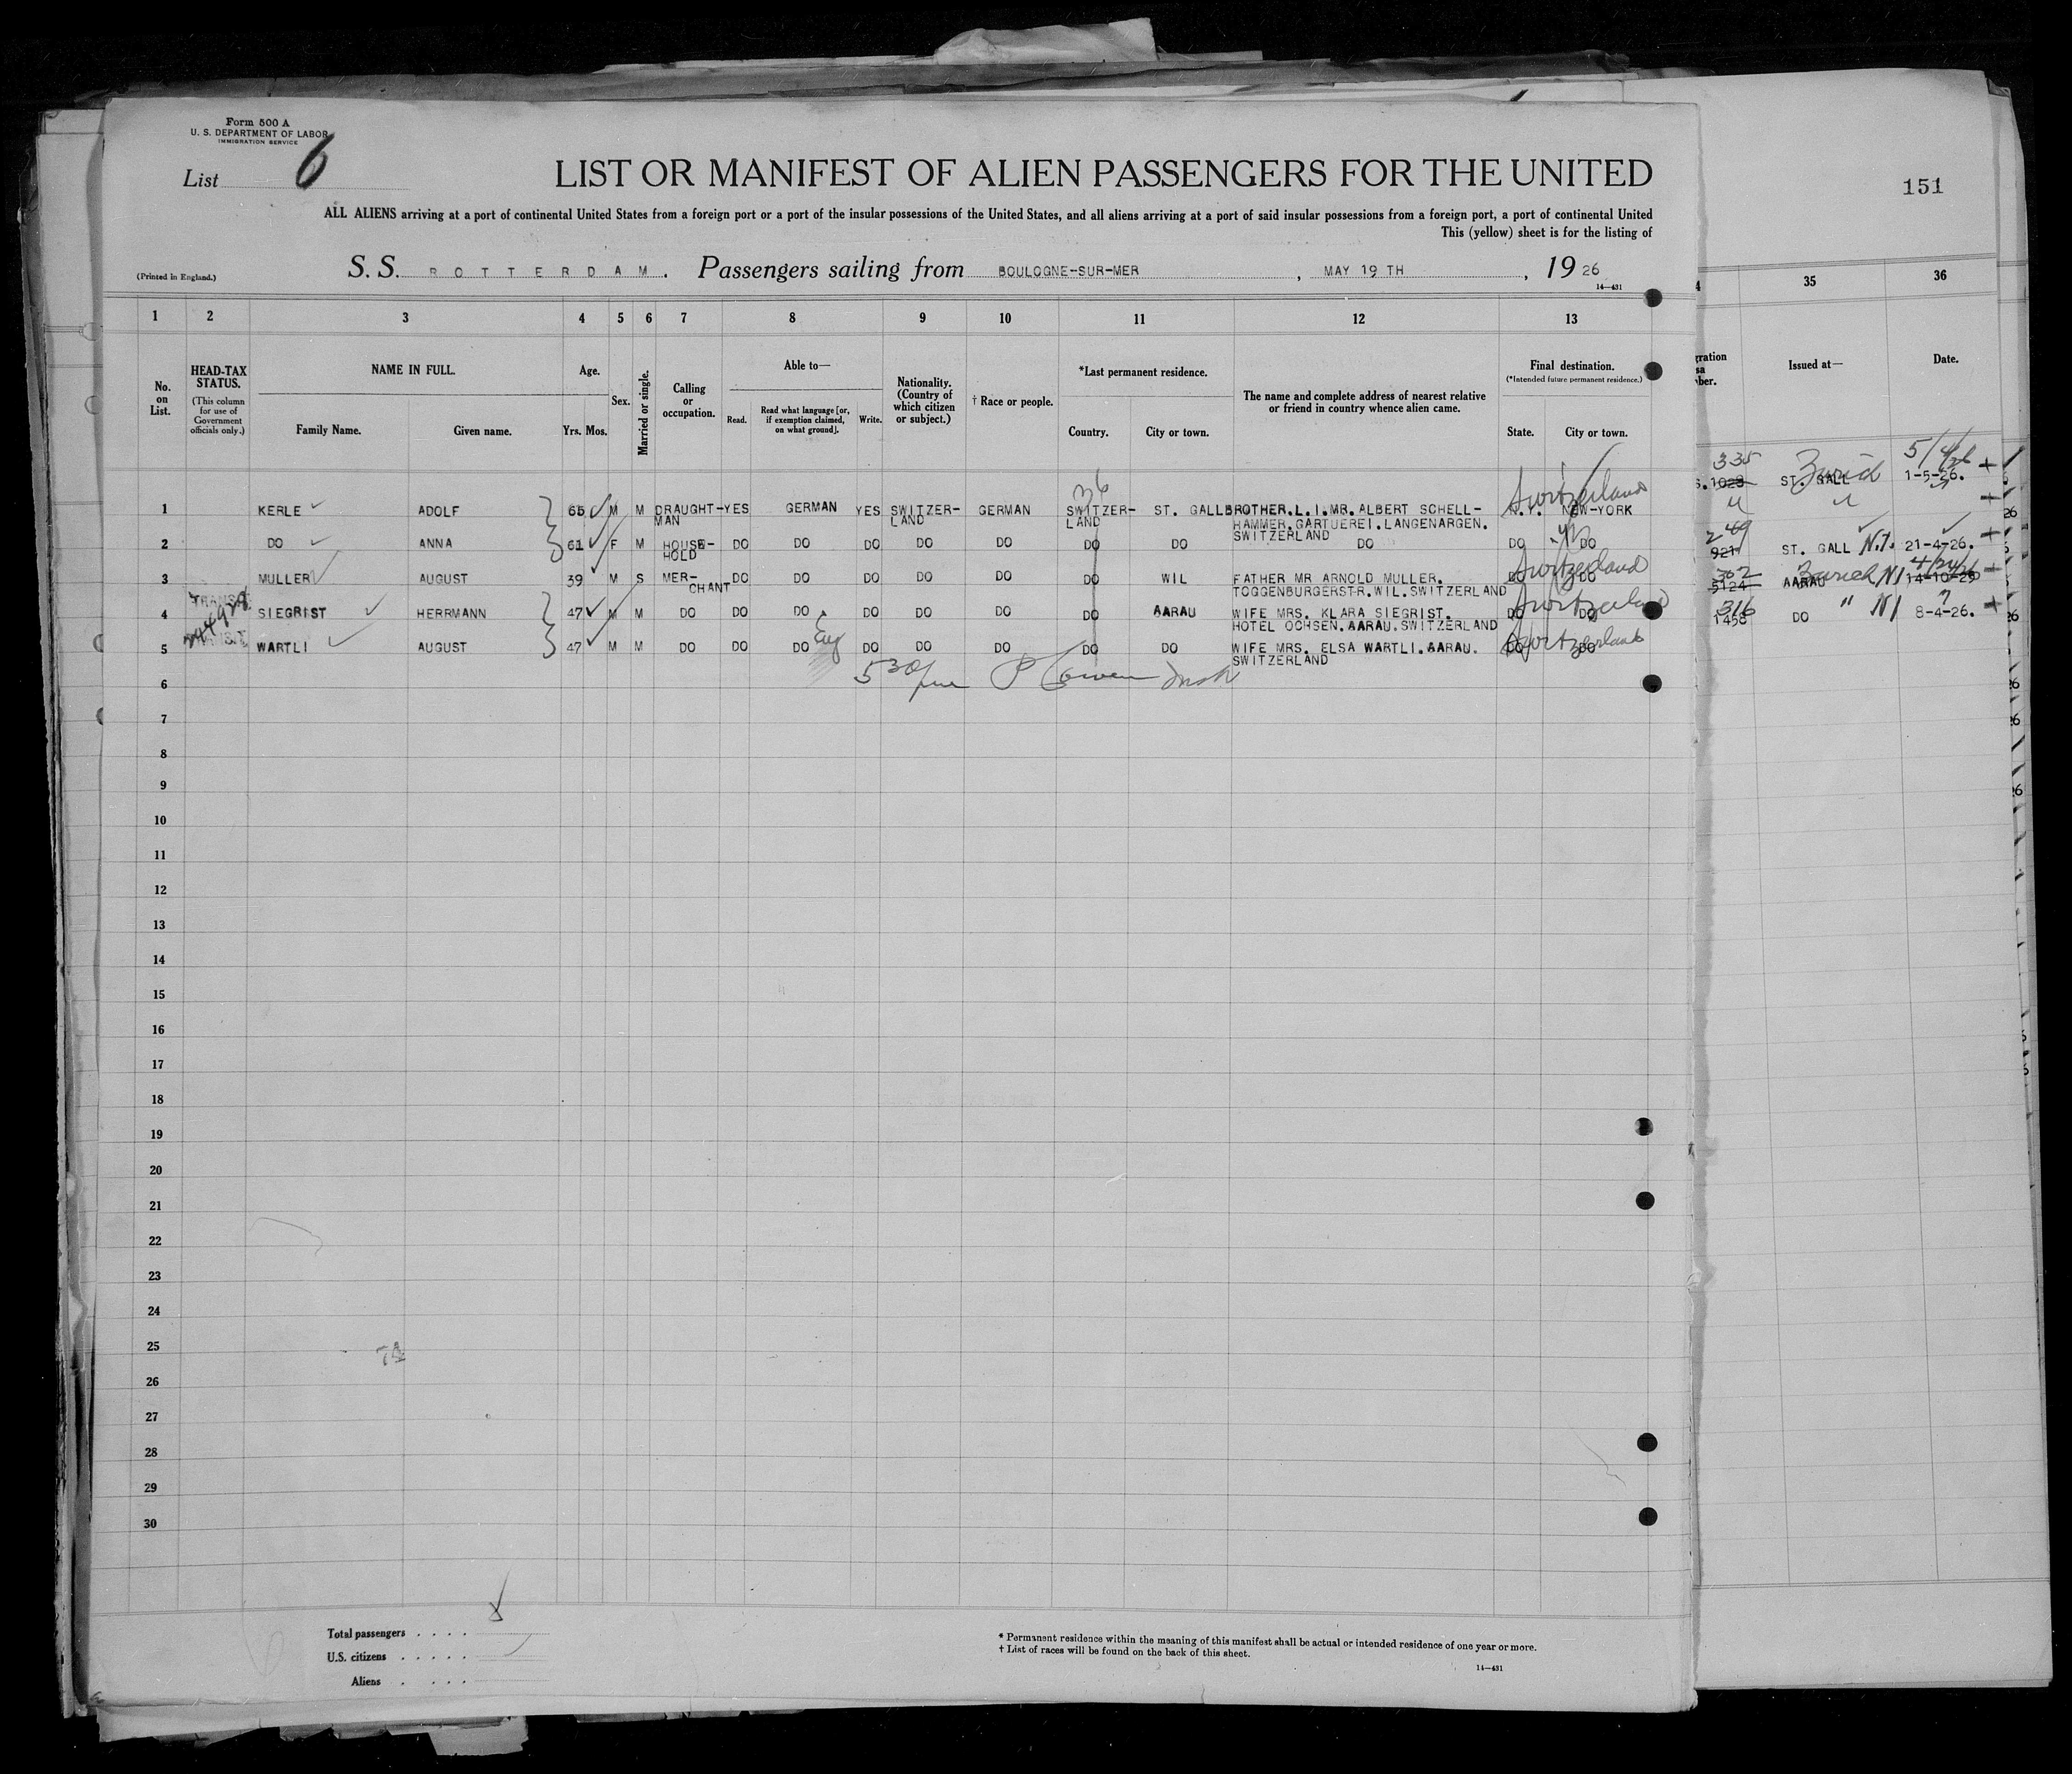 Form 500 A
U. S. DEPARTMENT OF LABOR
IMMIGRATION SERVICE
List 6
LIST OR MANIFEST OF ALIEN PASSENGERS FOR THE UNITED
151
ALL ALIENS arriving at a port of continental United States from a foreign port or a port of the insular possessions of the United States, and all aliens arriving at a port of said insular possessions from a foreign port, a port of continental United
This (yellow) sheet is for the listing of
(Printed in England.) S. S. ROTTERDAM. Passengers sailing from BOULOGNE-SUR-MER, MAY 19 TH, 19 26
14—431
1 2 3 4 5 6 7 8 9 10 11 12 13 35 36
No. on List.
HEAD-TAX STATUS.
(This column for use of Government officials only.)
NAME IN FULL.
Family Name. Given name.
Age.
Yrs. Mos.
Sex.
Married or single.
Calling or occupation.
Able to—
Read.
Read what language [or, if exemption claimed, on what ground].
Write.
Nationality. (Country of which citizen or subject.)
† Race or people.
*Last permanent residence.
Country. City or town.
The name and complete address of nearest relative or friend in country whence alien came.
Final destination.
(*Intended future permanent residence.)
State. City or town.
Issued at—
Date.
36 Switzerland 335 Zurich 5/4/26
1 KERLE ADOLF 65 M M DRAUGHT-MAN YES GERMAN YES SWITZER-LAND GERMAN SWITZER-LAND ST. GALL BROTHER.L.I.MR.ALBERT SCHELL-HAMMER.GARTUEREI.LANGENARGEN.SWITZERLAND N.Y. NEW-YORK 1023 ST. GALL 1-5-26.
2 DO ANNA 61 F M HOUSE-HOLD DO DO DO DO DO DO DO DO DO DO 921 ST. GALL 21-4-26.
3 MULLER AUGUST 39 M S MER-CHANT DO DO DO DO DO DO WIL FATHER MR ARNOLD MULLER. TOGGENBURGERSTR.WIL.SWITZERLAND DO DO Switzerland 5124 AARAU Zurich 14-10-25
4 TRANSIT SIEGRIST HERRMANN 47 M M DO DO DO DO DO DO DO AARAU WIFE MRS. KLARA SIEGRIST. HOTEL OCHSEN.AARAU.SWITZERLAND DO DO Switzerland 316 1458 DO 8-4-26.
5 TRANSIT WARTLI AUGUST 47 M M DO DO DO Eng DO DO DO DO DO WIFE MRS. ELSA WARTLI.AARAU. SWITZERLAND DO DO Switzerland
6 530 pm
7
8
9
10
11
12
13
14
15
16
17
18
19
20
21
22
23
24
25
26
27
28
29
30
Total passengers
U.S. citizens
Aliens
* Permanent residence within the meaning of this manifest shall be actual or intended residence of one year or more.
† List of races will be found on the back of this sheet.
14—431